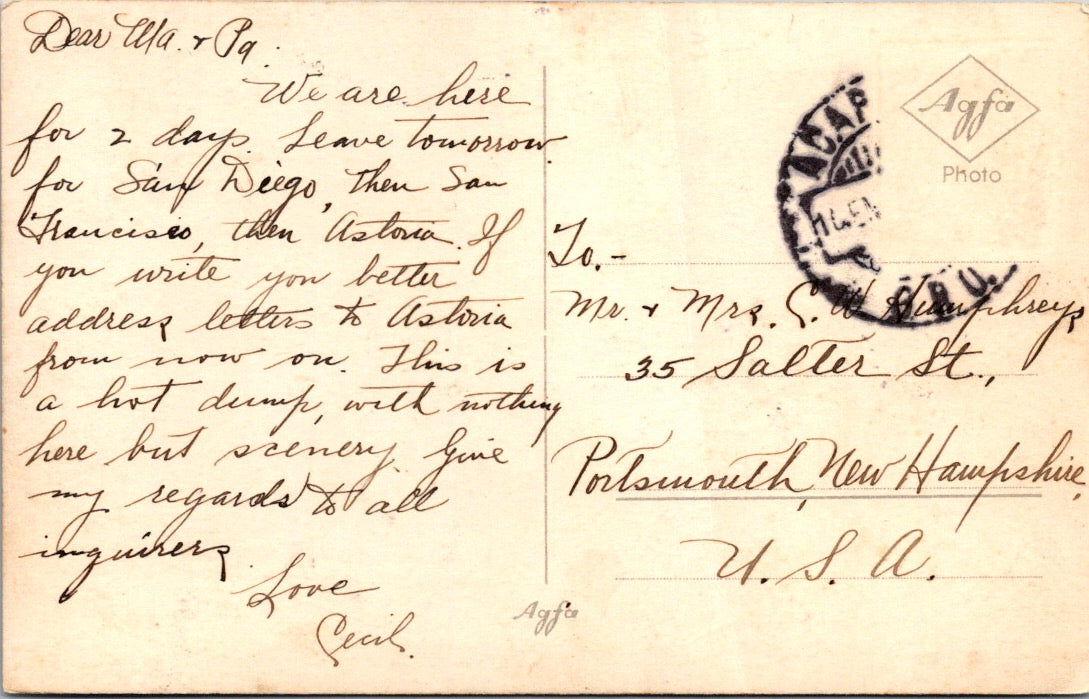 Dear Ma. & Pa.
We are here
for 2 days. Leave tomorrow
for San Diego, then San
Francisco, then Astoria. If
you write you better
address letters to Astoria
from now on. This is
a hot dump, with nothing
here but scenery. Give
my regards to all
inquirers
Love
Cecil.
Agfa
Agfa
Photo
ACAP
To,-
Mr. & Mrs. C. W. Humphreys
35 Salter St.,
Portsmouth, New Hampshire,
U. S. A.